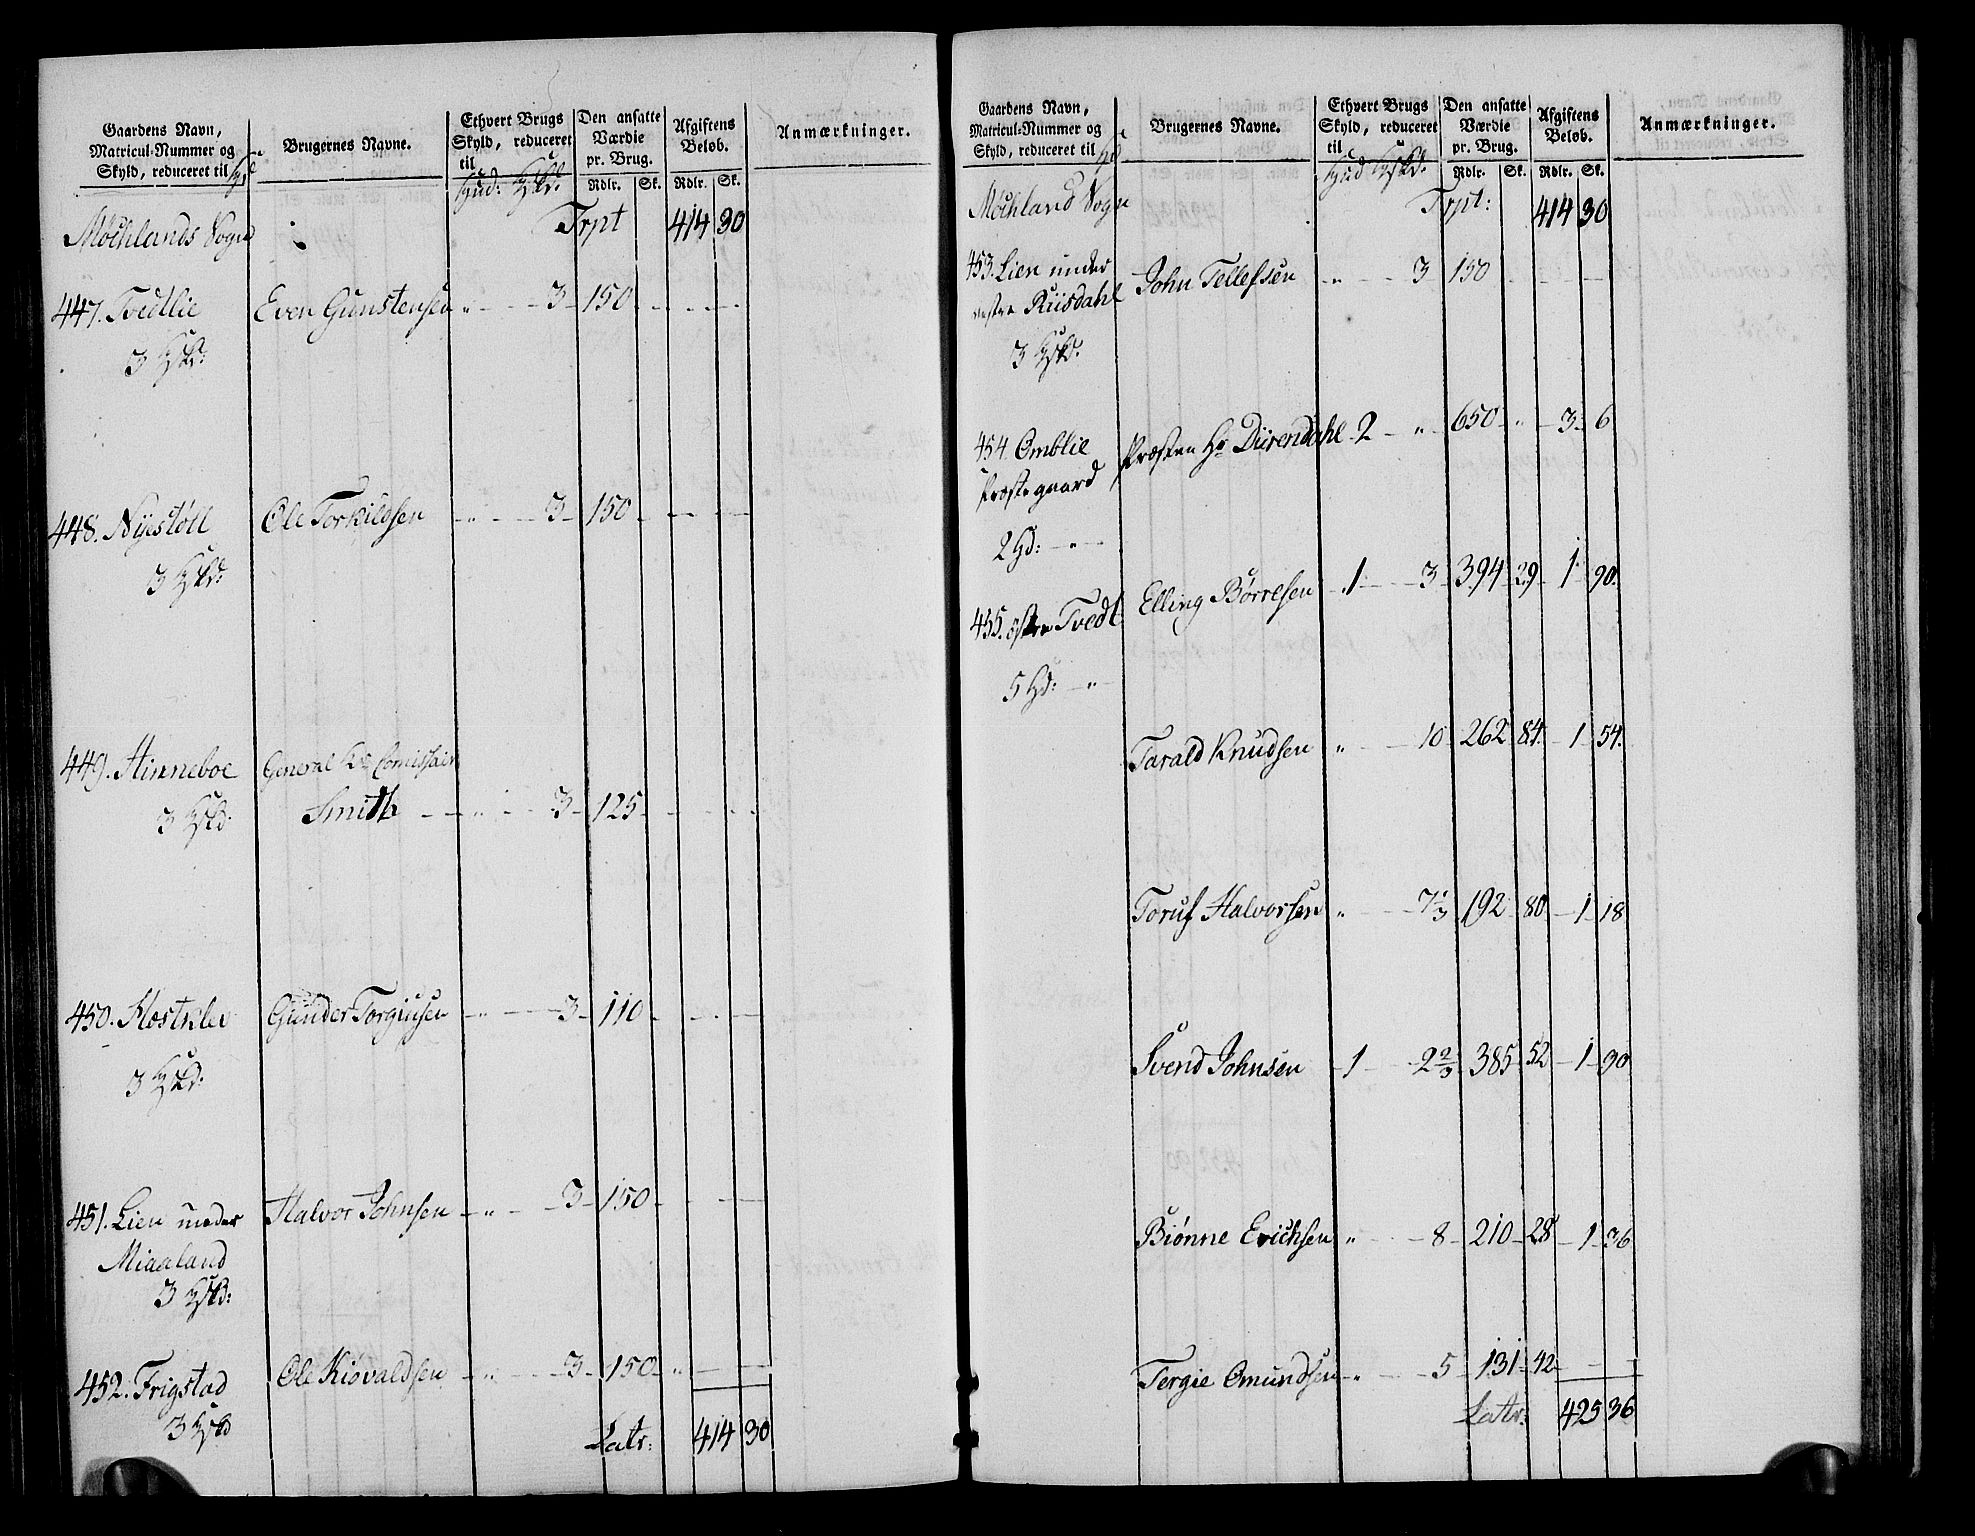 Gaardens Navn, Matricul-Nummer og Skyld, reduceret til | Brugernes Navne. | Ethvert Brugs Skyld, reduceret til Hud: Hskd: | Den ansatte Værdie pr. Brug. Rdlr. Sk. | Afgiftens Beløb. Rdlr. Sk. | Anmærkninger.
Møchlands Sogn Trpt 414 30
447. Tvedtlie Even Gunstensen " 3 150
3 Hskd:
448. Nyestøll Ole Torkildsen " 3 150
3 Hskd:
449. Hinneboe General Comissair
3 Hskd: Smith " 3 125
450. Kostklev Gunder Torgiusen " 3 110
3 Hskd:
451. Lien under Halvor Johnsen " 3 150
Miaaland
3 Hskd:
452. Frigstad Ole Kiøvaldsen " 3 150 "
3 Hskd
Latr: 414 30
Gaardens Navn, Matricul-Nummer og Skyld, reduceret til | Brugernes Navne. | Ethvert Brugs Skyld, reduceret til Hud Hskd: | Den ansatte Værdie pr. Brug. Rdlr. Sk. | Afgiftens Beløb. Rdlr. Sk. | Anmærkninger.
Møchland Sogn Trpt: 414 30
453. Lien under John Tellefsen " 3 150
vestre Riisdahl
3 Hskd:
454. Omblie Præsten Hr Diirendahl 2 " 650 " 3 6
Præstegaard
2 Hd: "
455. østre Tvedt Elling Børresen 1 3 394 29 1 90.
5 Hd: "
Tarald Knudsen " 10 262 84. 1 54.
Toruf Halvorsen " 7 1/3 192 80 1 18
Svend Johnsen 1 2 2/3 385 52 1 90
Biønne Erichsen " 8 210 28 1 36
Tergie Omundsen " 5 131 42
Latr: 425 36